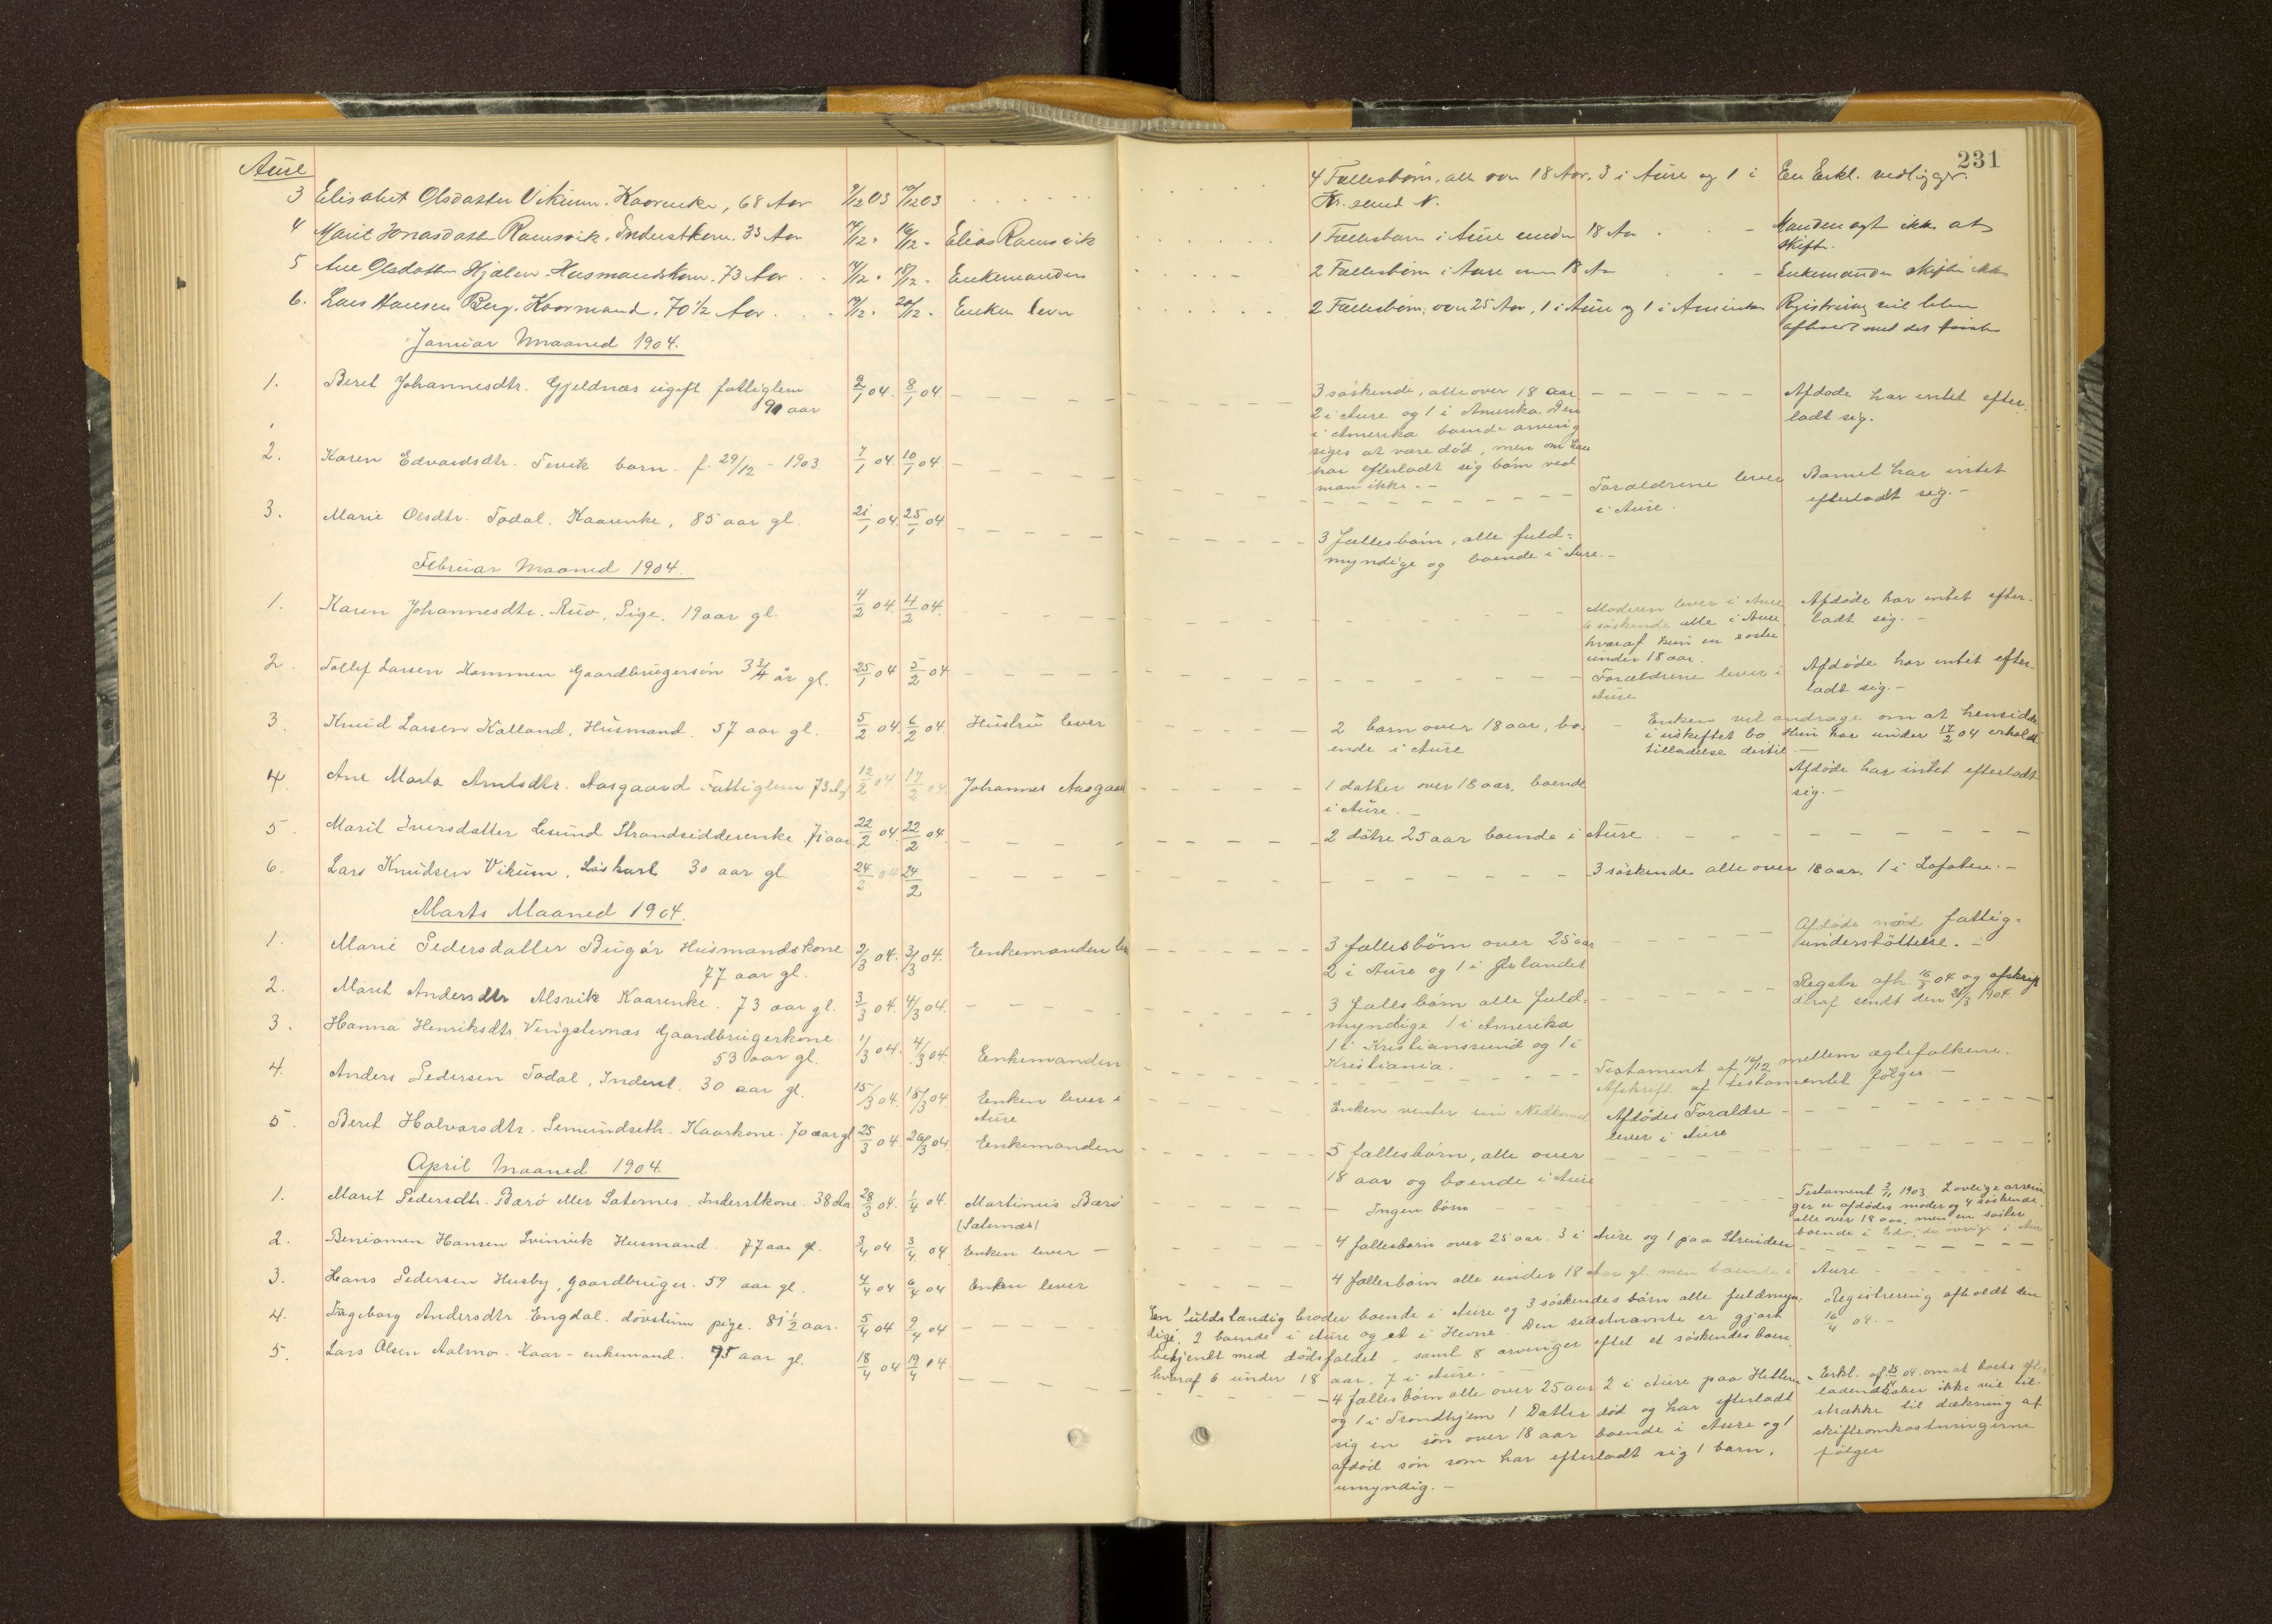 231
Aure
3 Elisabet Olsdatter Vikum. Kaarenke, 68 Aar 9/12 03 10/12 03
4 Fællesbörn, alle over 18 Aar, 3 i Aure og 1 i En Erkl. vedligger.
Kr.sund N.
4 Marit Jonasdatter Ramsvik. Inderstkone. 33 Aar 14/12 " 16/12 " Elias Ramsvik 1 Fællesbarn i Aure under 18 Aar - Manden agt ikke at
skifte.
5 Ane Olsdatter Hjælen. Husmandskone. 73 Aar 14/12 " 18/12 " Enkemanden 2 Fællesbörn i Aure over 18 Aar - Enkemanden skifter ikke
6. Lars Hansen Berg. Kaarmand. 70 1/2 Aar 19/12 " 20/12 " Enken lever 2 Fællesbörn, over 25 Aar, 1 i Aure og 1 i Amerika Registrering vil blive
afholdt med det første
Januar Maaned 1904.
1. Beret Johannesdtr. Gjeldnæs ugift fattiglem 2/1 04. 8/1 04.
90 aar
3 söskende, alle over 18 aar Afdøde har intet efter
2 i Aure og 1 i Amerika. Den ladt sig.
i Amerika boende arving
siges at være død, men om han
har efterladt sig börn ved
man ikke. -
2. Karen Edvardsdtr. Tevik barn. f. 29/12 - 1903. 7/1 04. 10/1 04
Forældrene lever Barnet har intet
i Aure. efterladt sig. -
3. Marie Olsdtr. Todal. Kaarenke, 85 aar gl. 21/1 04. 25/1 04.
3 fællesbörn, alle fuld=
myndige og boende i Aure. -
Februar Maaned 1904.
1. Karen Johannesdtr. Ruø. Pige. 19 aar gl. 4/2 04. 4/2 04.
Moderen lever i Aure Afdøde har intet efter-
6 söskende alle i Aure ladt sig. -
hvoraf kun en söster
under 18 aar.
2. Tollef Larsen Hammen Gaardbrugersön 3 3/4 år gl. 25/1 04 5/2 04
Forældrene lever i Afdøde har intet efter-
Aure ladt sig. -
3. Knud Larsen Kalland, Husmand. 57 aar gl. 5/2 04. 6/2 04. Hustru lever
2 barn over 18 aar, bo- Enken vil andrage om at hensidde
ende i Aure i uskiftet bo. Hun har under 17/2 04 erholdt
tilladelse dertil -
4. Ane Marta Arntsdtr. Aasgaard Fattiglem 73 Aar 12/2 04 17/2 04. Johannes Aasgaard
1 datter over 18 aar, boende Afdöde har intet efterladt
i Aure. - sig. -
5. Marit Iversdatter Lesund Strandsidderenke 71 aar 22/2 04. 22/2 04.
2 dötre 25 aar boende i Aure.
6. Lars Knudsen Vikum. Löskarl 30 aar gl. 24/2 04 24/2
3 söskende alle over 18 aar, 1 i Lofoten. -
Marts Maaned 1904.
1. Marie Pedersdatter Bugår Husmandskone 2/3 04. 3/3 04. Enkemanden lever
77 aar gl.
3 fællesbörn over 25 aar Afdöde nöd fattig=
2 i Aure og 1 i Ørlandet understöttelse. -
2. Maret Andersdtr Alsvik Kaarenke. 73 aar gl. 3/3 04. 4/3 04.
3 fællesbörn alle fuld= Registr. afh. 16/3 04 og afskrift
myndige 1 i Amerika deraf sendt den 21/3 1904.
1 i Kristianssund og 1 i
Kristiania.
3. Hanna Henriksdtr Vingstevnæs Gaardbrugerkone 1/3 04. 4/3 04 Enkemanden
53 aar gl.
Testament af 16/12 mellem ægtefolkene.
Afskrift af testamentet følger. -
4. Anders Pedersen Todal, Inderst. 30 aar gl. 15/3 04. 18/3 04. Enken lever i
Aure
Enken venter sin Nedkomst Afdødes Forældre
lever i Aure
5. Beret Halvorsdtr. Semundseth. Kaarkone. 70 aar gl 25/3 04. 26/3 04. Enkemanden
5 fællesbörn, alle over
18 aar og boende i Aure
April Maaned 1904.
1. Marit Pedersdtr. Barö eller Saternes. Inderstkone. 38 Aar 28/3 04. 1/4 04. Martinus Barö
(Saternæs)
Ingen börn
Testament 3/11 1903. Lovlige arvin
ger er afdødes moder og 4 søskende,
alle over 18 aar, men en søster
boende i Edö, de övrige i Aure
2. Beniamen Hansen Svinvik Husmand. 77 aar gl. 3/4 04 3/4 04 Enken lever -
4 fællesbörn over 25 aar. 3 i Aure og 1 paa Strinden
3. Hans Pedersen Husby, gaardbruger. 59 aar gl. 4/4 04 6/4 04 Enken lever
4 fællesbörn alle under 18 Aar gl. men boende i Aure
4. Ingeborg Andersdtr Engdal. dövstum pige. 81 1/2 aar. 5/4 04 9/4 04
En fuldstændig broder boende i Aure og 3 söskendes börn alle fuldmyn- Registrering afholdt den
dige, 2 boende i Aure og et i Hevne. Den sidstnævnte er gjort 16/4 04. -
bekjendt med dödsfaldet - samt 8 arvinger efter et söskendes barn,
hvoraf 6 under 18 aar, 7 i Aure. -
5. Lars Olsen Aalmo. Kaar-enkemand. 75 aar gl. 18/4 04 19/4 04.
4 fælles börn alle over 25 aar 2 i Aure paa Hitteren Erkl. af 25/4 04 om at boets efter
og 1 i Trondhjem 1 Datter död og har efterladt ladenskaber ikke vil til-
sig en sön over 18 aar boende i Aure og 1 strække til dækning af
afdöd sön som har efterladt sig 1 barn, skifteomkostningerne
umyndig. - følger